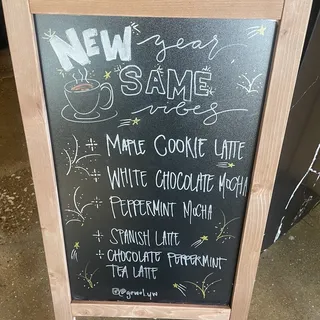 NEW year
SAME
vibes
+ MAPLE COOKIE LATTE
+ WHITE CHOCOLATE MOCHA
+ PEPPERMINT MOCHA
+ SPANISH LATTE
+ CHOCOLATE PEPPERMINT
TEA LATTE